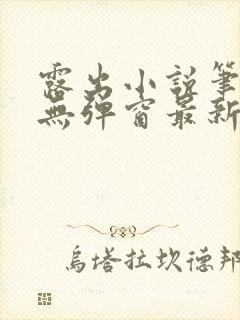 露出小说笔
無弹窗最新
烏塔拉坎德邦